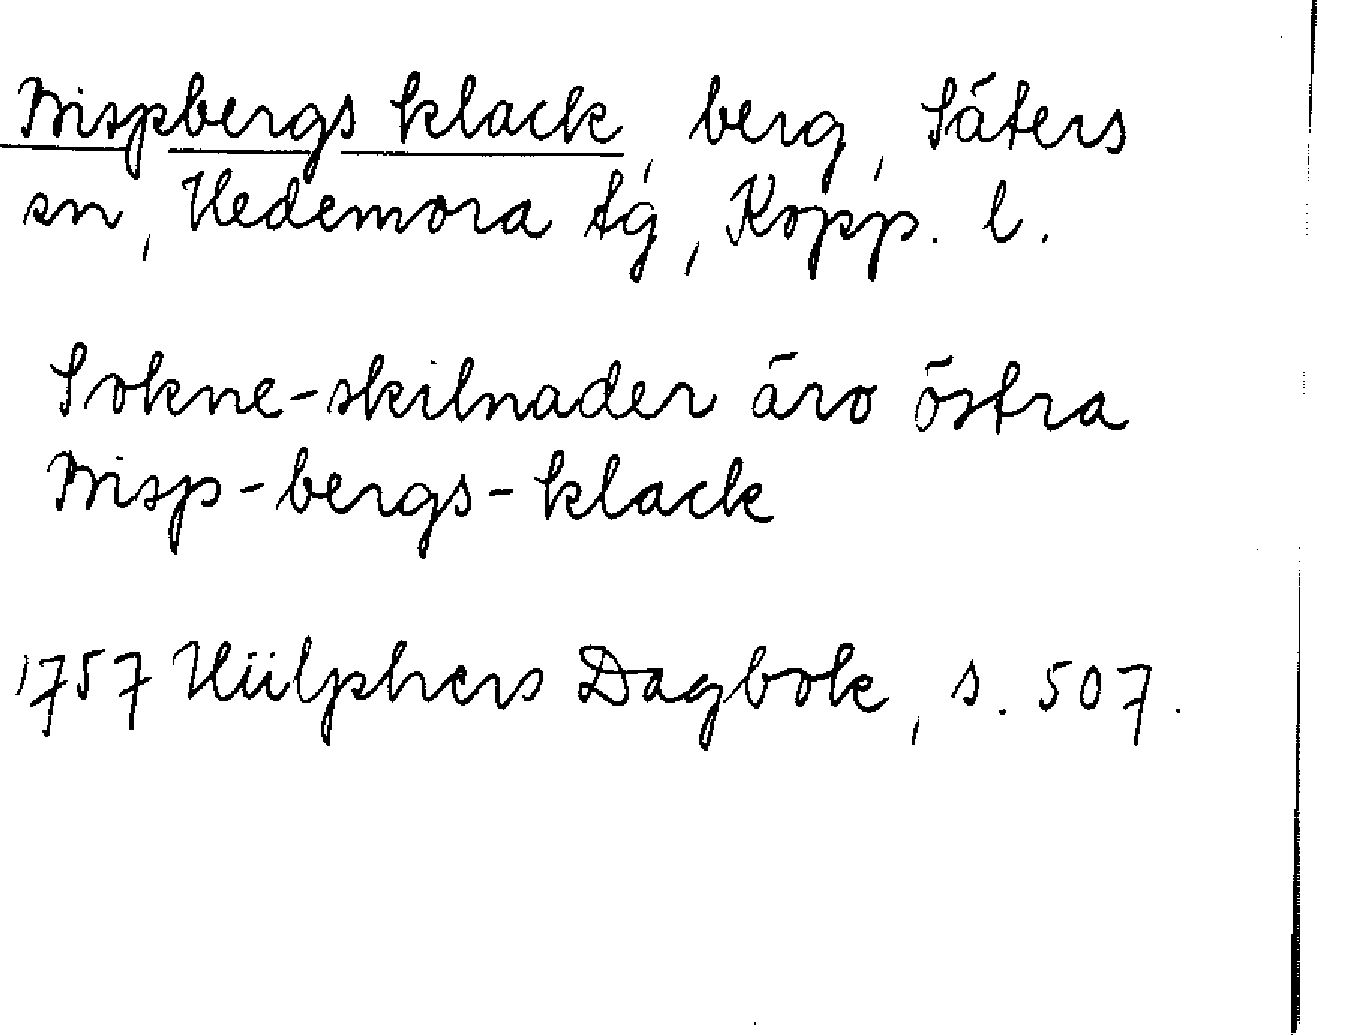 Bispbergs klack, berg, Säters
sn, Hedemora tg, Kopp. l.
Sokne-skilnader äro östra
Bisp-bergs-klack
1757 Hülphers Dagbok, s. 507.